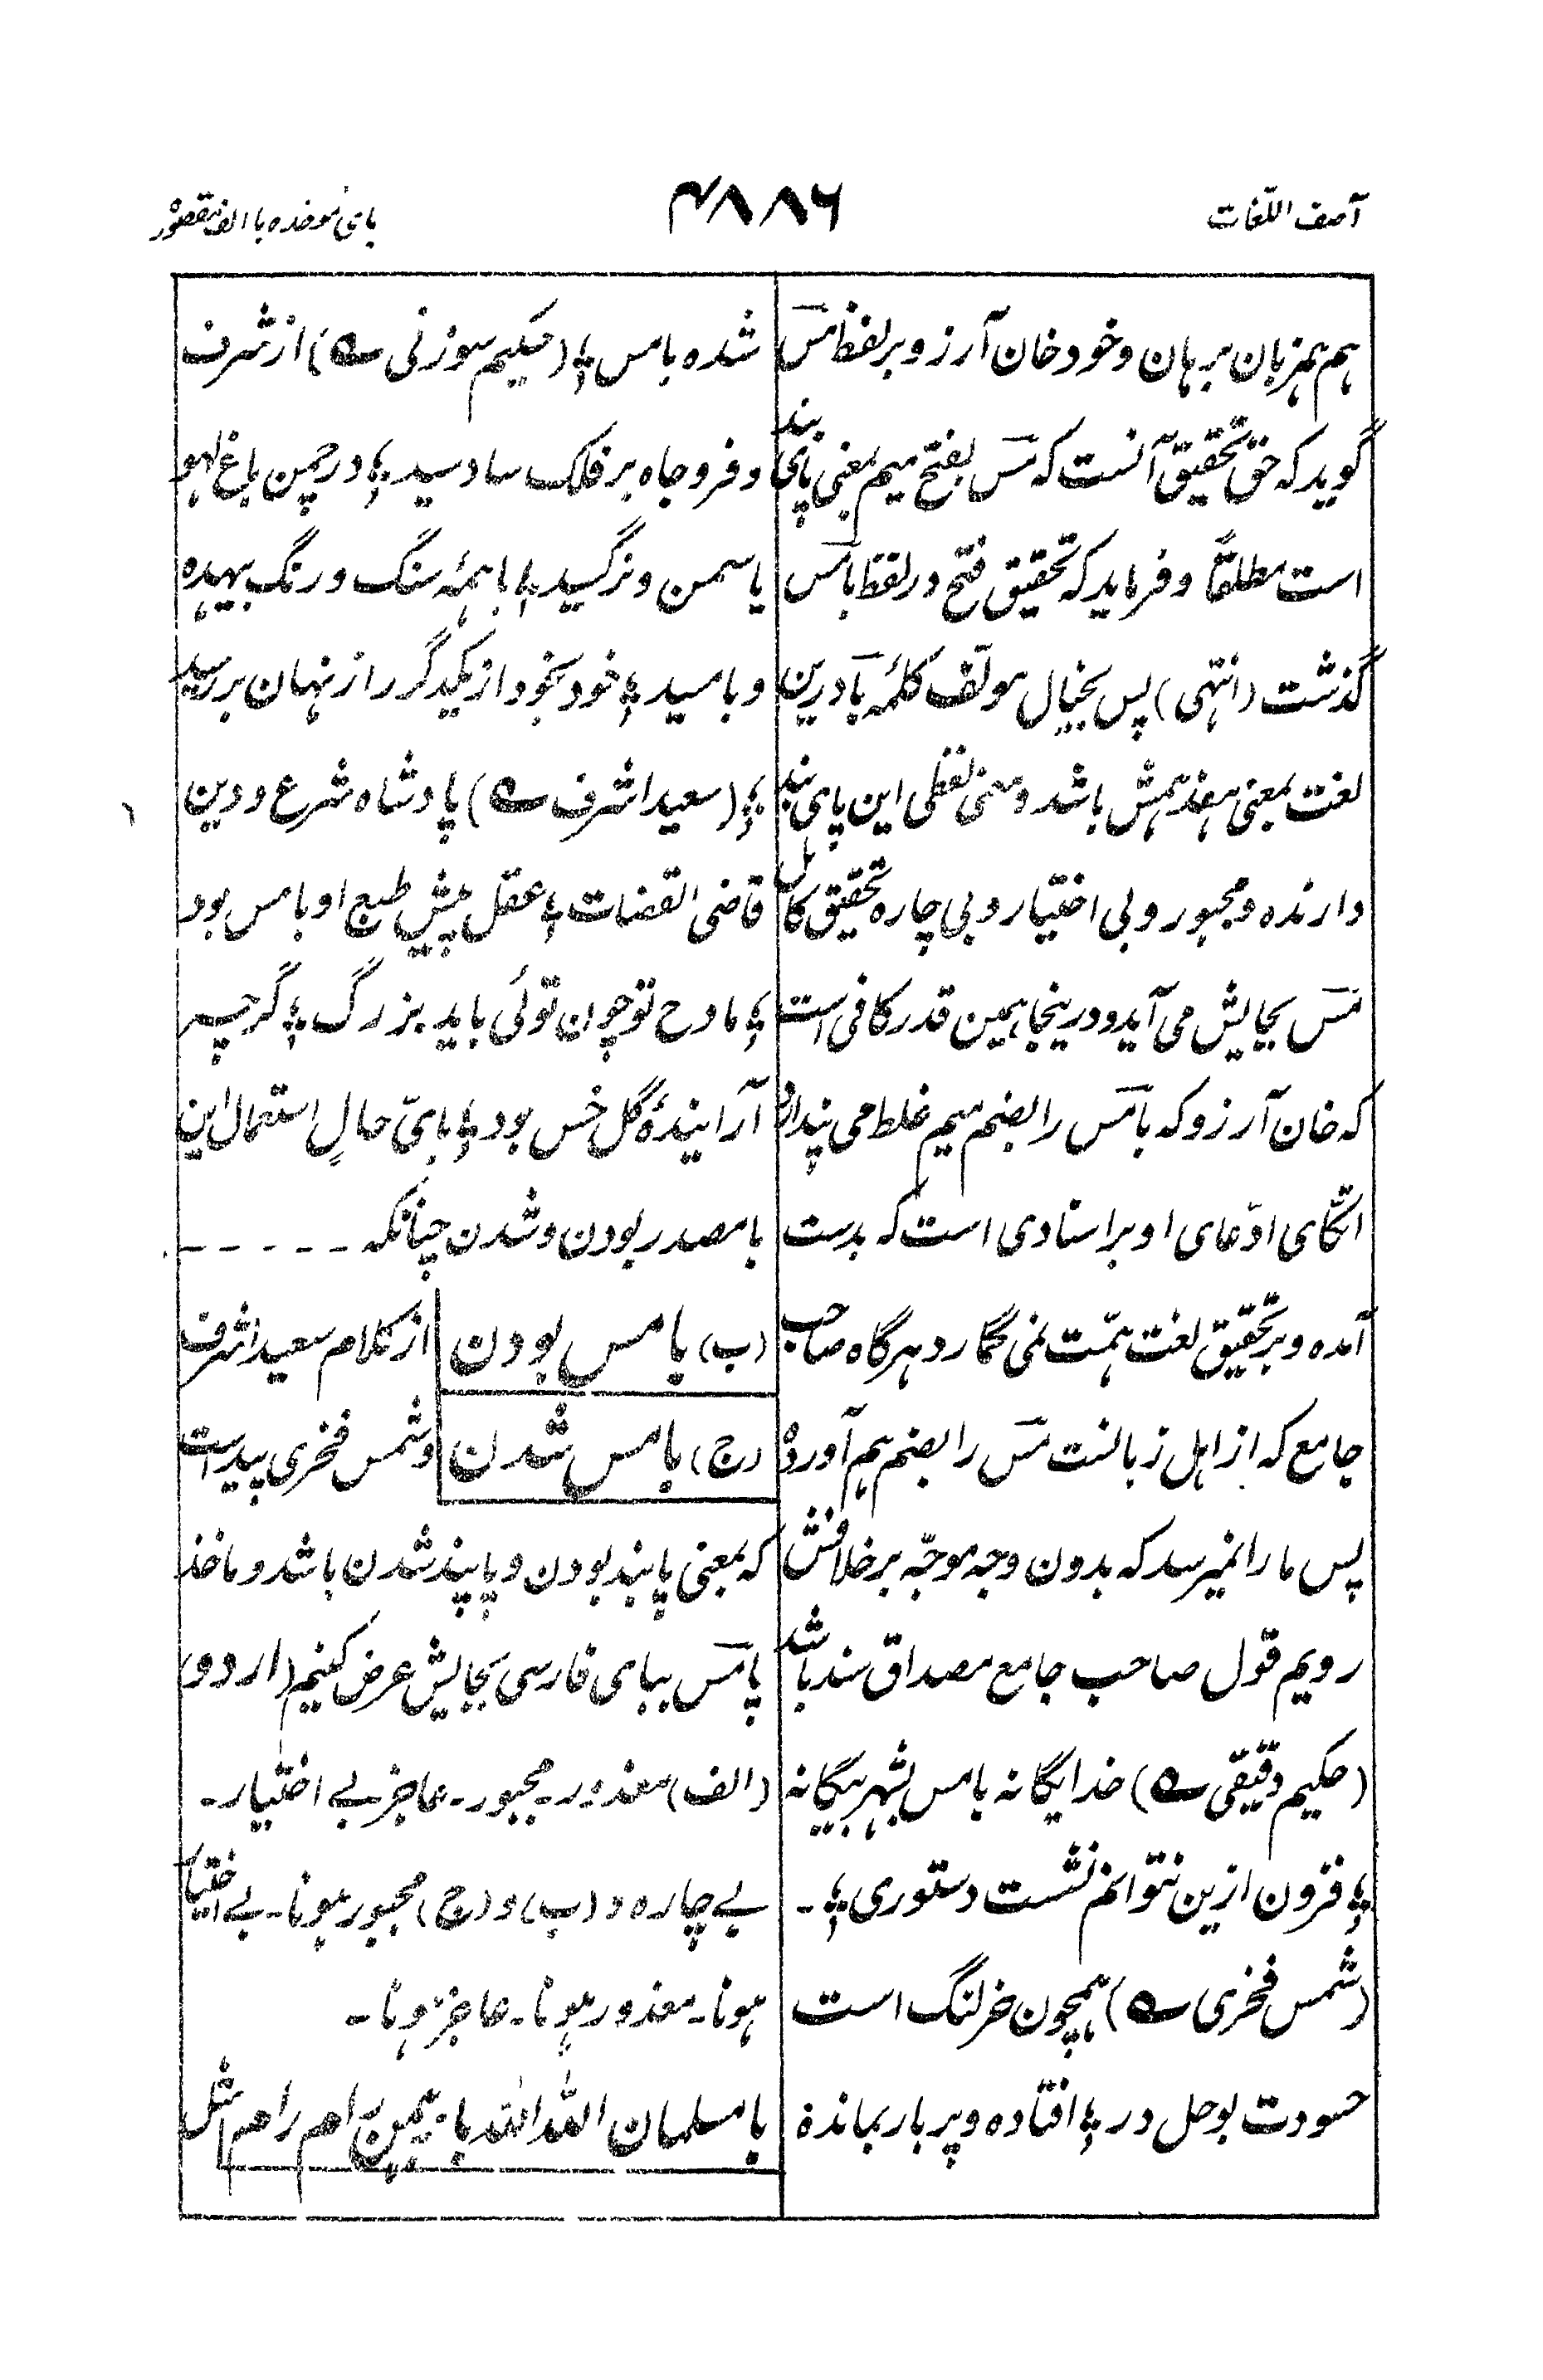 آصف اللّغات
۴۸۸۶
بای موحده با الف مقصوره
هم همزبان برهان و خود خان آرزو بر لفظ مَس
گوید که حق تحقیق آنست که مَس بفتح میم بمعنی پای بند
است مطلقاً و فرماید که تحقیق فتح در لفظ بامَس
گذشت (انتهی) پس بخیال مولّف کلمهٔ با درین
لغت بمعنی هفدهمش باشد و معنی لفظی این پای بند
دارنده و مجبور و بی اختیار و بی چاره تحقیق کامل
مَس بجایش می آید و درینجا همین قدر کافی است
که خان آرزو که بامَس را بضم میم غلط می پندارد
اتّکای ادّعای او بر اسنادی است که بدست
آمده و بر تحقیق لغت همّت نمی گمارد هرگاه صاحب
جامع که از اهل زبانست مَس را بضم هم آورده
پس ما را نمیرسد که بدون وجه موجّه بر خلافش
رویم قول صاحب جامع مصداق سند باشد
(حکیم دقیقی ؎) خدایگانه بامس بشهر بیگانه
؛ فزون ازین نتوانم نشست دستوری ؛ ۔
(شمس فخری ؎) همچون خر لنگ است
حسودت بوحل در ؛ افتاده و پر بار بمانده
شده بامس ؛ (حکیم سوزنی ؎) از شرف
و فر و جاه بر فلک سادسید ؛ در چمن باغ لهو
یاسمن و نرگسید ؛ با همهٔ سنگ و رنگ بیهده
و بامسید ؛ خود بخود از یکدگر راز نهان بررسید
؛ (سعید اشرف ؎) پادشاه شرع و دین
قاضی القضات ؛ عقل پیش طبع او بامس بود
؛ مادح تو چون توئی باید بزرگ ؛ گرچه
آرایندهٔ گل خس بود ؛ بایّ حالٍ استعمال این
با مصدر بودن و شدن چنانکه - - - - - -
(ب) بامس بودن از کلام سعید اشرف
(ج) بامس شدن و شمس فخری پیداست
که بمعنی پابند بودن و پابند شدن باشد و ماخذ
پامَس ببای فارسی بجایش عرض کنیم (اردو)
(الف) معذور۔ مجبور۔ عاجز۔ بے اختیار۔
بے چاره و (ب) و (ج) مجبور ہونا۔ بے اختیار
ہونا۔ معذور ہونا۔ عاجز ہونا۔
با مسلمان الله الله با برہمن رام رام مثل